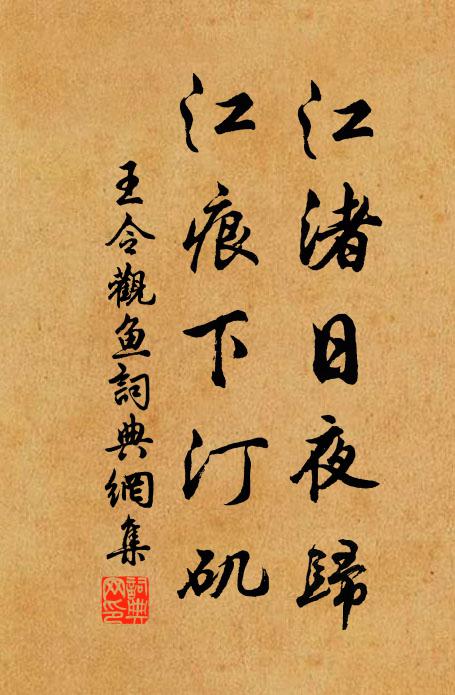 江渚日夜歸
江痕下汀矶
王令觀鱼詞典網集
詞典网印